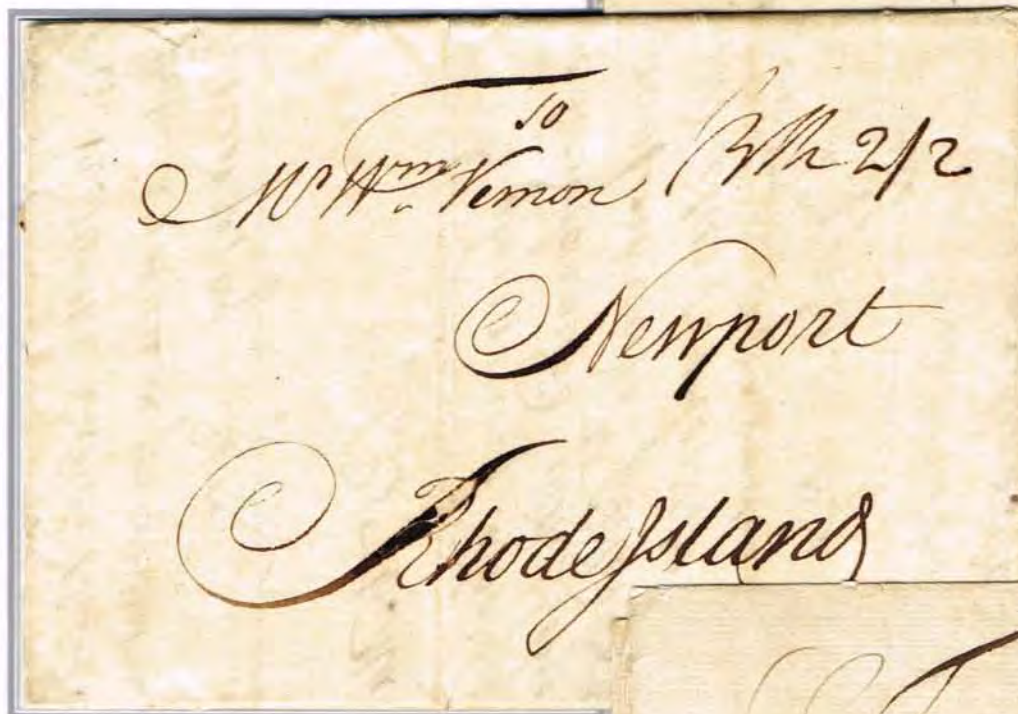 To
Mr Wm Vernon 2/2
Newport
Rhode Island